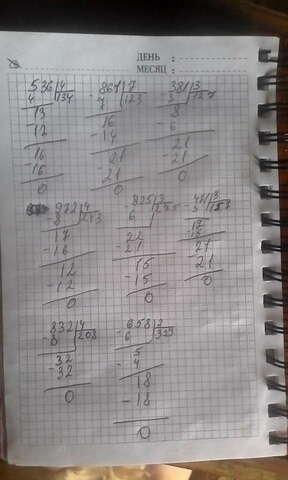 ДЕНЬ :
МЕСЯЦ :
536|4 -861|7 -381|3
4 |134 7 |123 3 |127
13 16 8
-12 -14 -6
16 21 21
-16 -21 -21
0 0 0
972|4 -825|3
-8 |243 6 |275
17 22 17
-16 -21 15
12 15 21
-12 -15 -21
0 0 0
832|4 658|2
-8 |208 -6 |329
32 5
-32 -4
0 18
-18
0